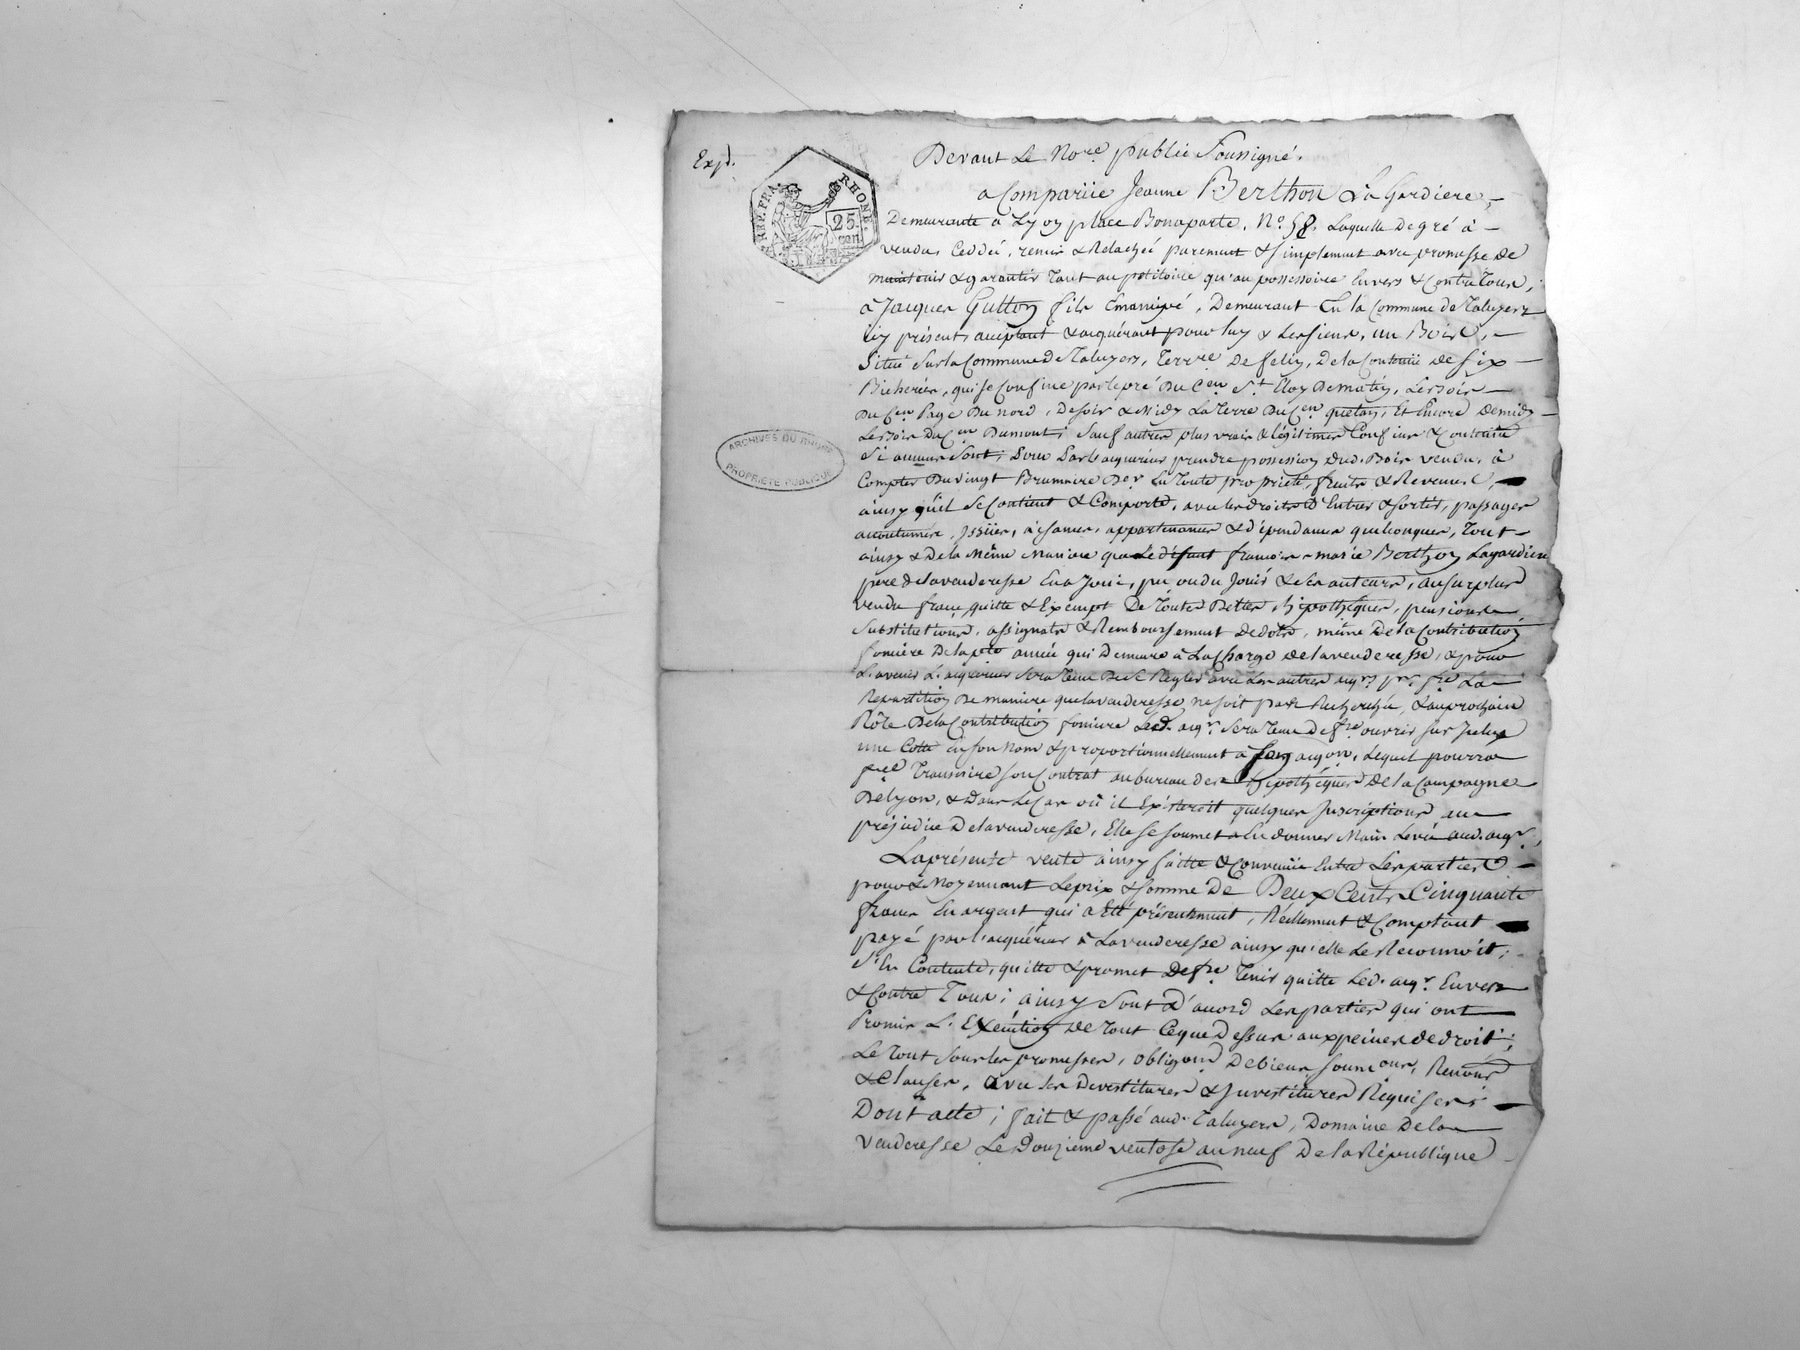 Expd.
REP. FRA.
RHONE.
25
cen
Devant Le Nore. public Soussigné.
a Compariie Jeanne Berthon La Gardiere,
Demeurante à Lyon place Bonaparte. No. 58. Laquelle de gré à
vendu, Ceddéé, remis & Relachéé purement & simplement avec promesse de
maintenir & garantir tant au petitoire qu'au possessoire Envers & Contre Tous,
à Jacques Gutton fils Emancipé, Demeurant En la Commune de Taluyers
icy présent, acceptant & acquérant pour luy & Les siens, un Bois,
Situé Sur la Commune de Taluyers, Terrre. De felin, De la Contenüe de six
Bicherées, qui se Confine par le pré Du Cen. St. Cloy De matin, Les Bois
Du Cen Page Du nord, De soir & Midy La Terre Du Cen. Et Encore De midy
Les Bois Du Cen Dumont; Sauf autres plus vrais & légitimes Confins & Contenüe
Si aucuns Sont; Pour Par L'acquéreur prendre possession dud. Bois vendu, à
Compter Du vingt Brumaire Der. En Toute propriété, fruits & Revenus,
ainsy qu'il se Contient & Comporte, avec les droits D'Entrer & sortir, passages
accoutumés, Issües, aisances, appartenances & dépendances quelconques, Tout
ainsy & De la Même Maniere que Le défunt francois-marie Berthon Lagardiere
pere de la venderesse En a Joui, pu ou du Jouir & ses auteurs, au surplus
vendu franc, quitte & Exempt De Toutes Dettes, hipothèques, pensions
Substitutions, assignats & Remboursement de dots, même De la Contribution
fonciere De la pnte année qui Demeure à La Charge de la venderesse, & pour
L'avenir L'acquéreur Sera Tenu De se Regler avec Les autres aqrs. pr. fre La
Repartition De maniere que la venderesse ne soit pas Recherchée, & au prochain
Rôle De la Contribution fonciere Led. aqr. Sera Tenu De fre ouvrir sur Icelux
une Cotte en son nom & proportionnellement à son aqon, Lequel pourra
fre Transcrire son Contrat au bureau des hipothèques De la Campagne
De Lyon, & Dans Le Cas où il Existeroit quelques Inscriptions au
préjudice De la venderesse, Elle se soumet à En donner Main Levée aud. aqr.
La présente vente ainsy faitte & Convenüe Entre Les parties
pour & Moyennant Le prix & Somme De Deux Cents Cinquante
francs En argent qui a Eté présentement, Réellement & Comptant
payé par L'acquéreur à La venderesse ainsy qu'elle Le Reconnoit;
S'En Contente, quitte & promet de fre Tenir quitte Led. aqr. Envers
& Contre Tous; ainsy Sont D'accord Les parties qui ont
Promis L'Exécution De Tout Ceque Dessus aux peines de droit;
Le Tout Sous les promesses, obligons De biens soumons, Renons
& Clauses, avec Les Devestitures & Investitures Requises
Dont acte; fait & passé aud. Taluyers, Domaine De la
Venderesse Le Douzieme ventose an neuf De la République
ARCHIVES DU RHONE
PROPRIETE PUBLIQUE